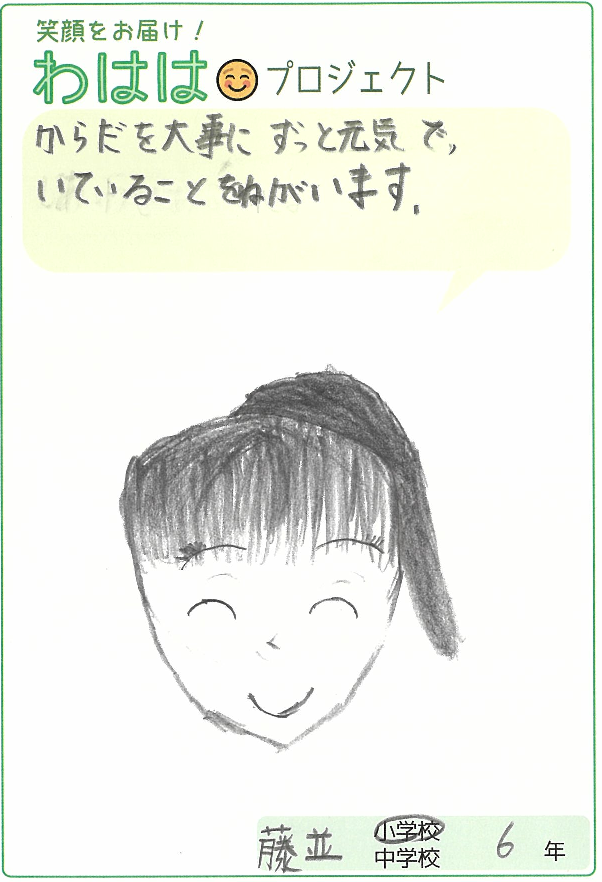 笑顔をお届け！
わははプロジェクト
からだを大事に ずっと元気 で、
いていることをねがいます。
藤並 小学校 6 年
中学校